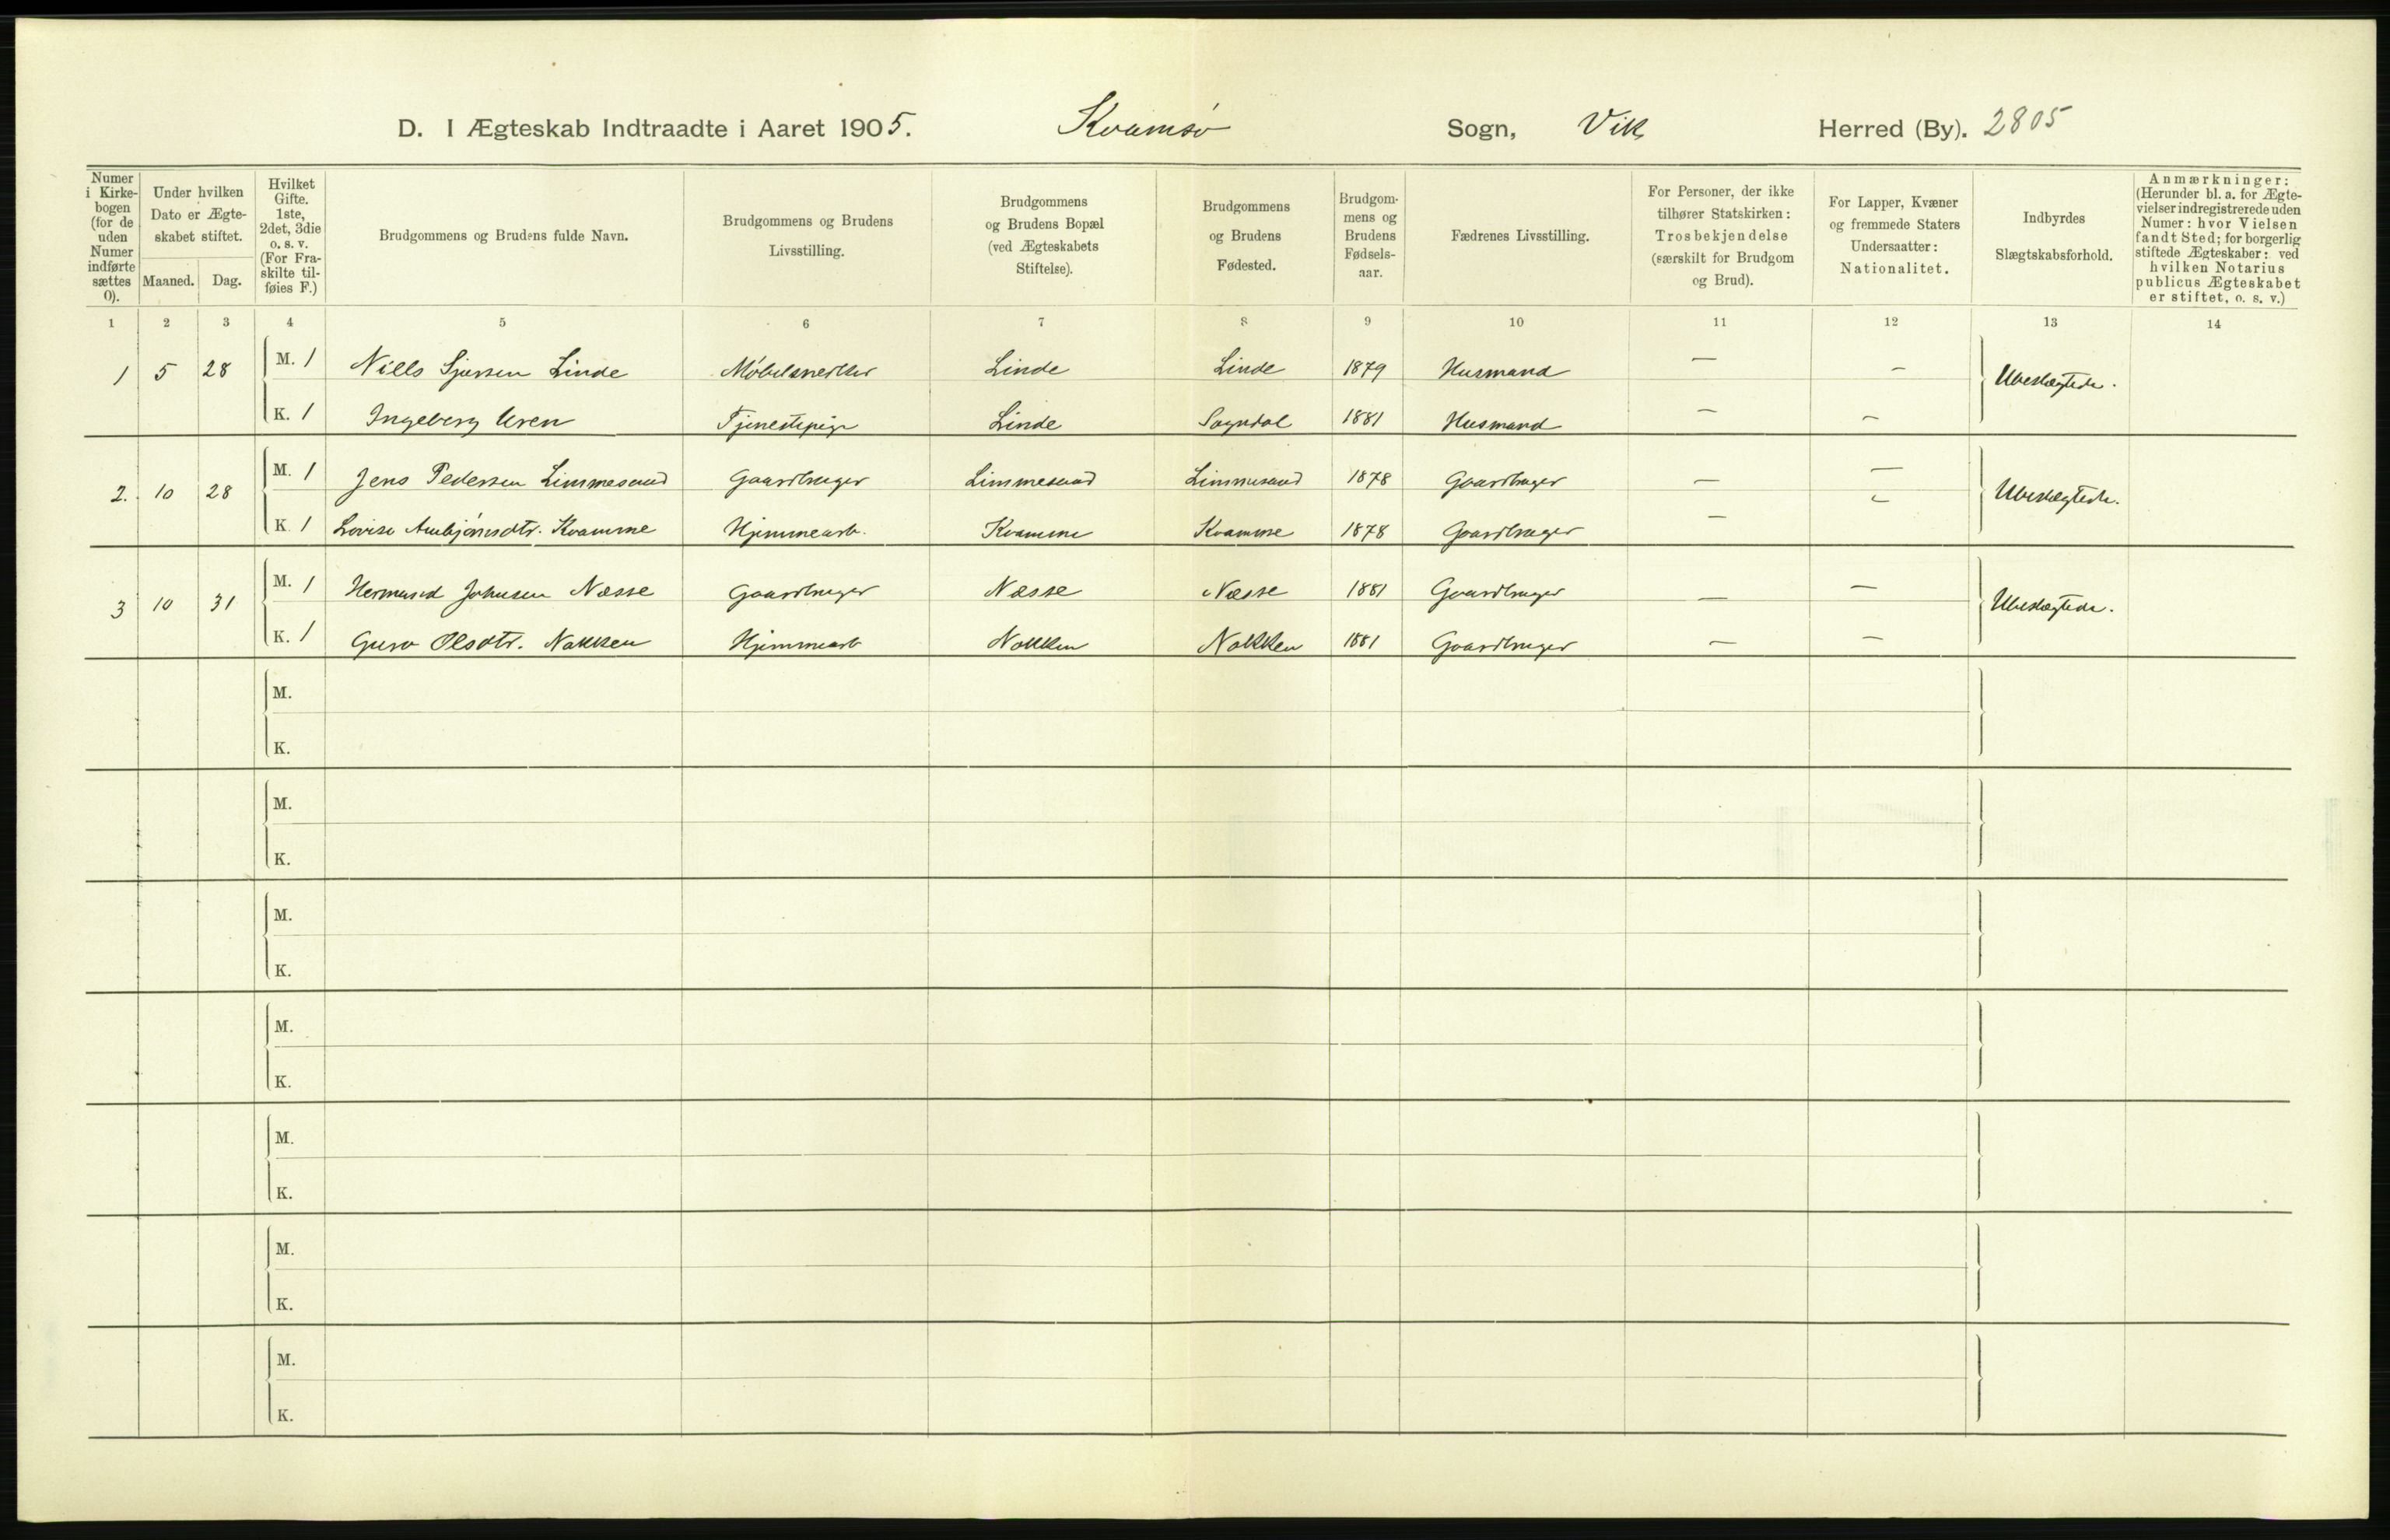 D. I Ægteskab Indtraadte i Aaret 1905. Kvamsø Sogn, Vik Herred (By). 2805
Numer i Kirkebogen (for de uden Numer indførte sættes 0).
Under hvilken Dato er Ægteskabet stiftet.
Maaned. Dag.
Hvilket Gifte. 1ste, 2det, 3die o. s. v. (For Fraskilte tilføies F.)
Brudgommens og Brudens fulde Navn.
Brudgommens og Brudens Livsstilling.
Brudgommens og Brudens Bopæl (ved Ægteskabets Stiftelse).
Brudgommens og Brudens Fødested.
Brudgommens og Brudens Fødselsaar.
Fædrenes Livsstilling.
For Personer, der ikke tilhører Statskirken: Trosbekjendelse (særskilt for Brudgom og Brud).
For Lapper, Kvæner og fremmede Staters Undersaatter: Nationalitet.
Indbyrdes Slægtskabsforhold.
Anmærkninger: (Herunder bl. a. for Ægtevielser indregistrerede uden Numer: hvor Vielsen fandt Sted; for borgerlig stiftede Ægteskaber: ved hvilken Notarius publicus Ægteskabet er stiftet, o. s. v.)
1 2 3 4 5 6 7 8 9 10 11 12 13 14
1 5 28 M. 1 Niels Sjursen Linde Møbelsnedker Linde Linde 1879 Husmand — — Ubeslægtede.
K. 1 Ingeborg Uren Tjenestepige Linde Sogndal 1881 Husmand — —
2. 10 28 M. 1 Jens Pedersen Limmesand Gaardbruger Limmesand Limmesand 1878 Gaardbruger — — Ubeslægtede.
K. 1 Lovise Kvamme Hjemmearb. Kvamme Kvamme 1878 Gaardbruger — —
3 10 31 M. 1 Hermund Johnsen Næsse Gaardbruger Næsse Næsse 1881 Gaardbruger — — Ubeslægtede.
K. 1 Guro Olsdtr. Nakken Hjemmearb Nakken Nakken 1881 Gaardbruger — —
M.
K.
M.
K.
M.
K.
M.
K.
M.
K.
M.
K.
M.
K.